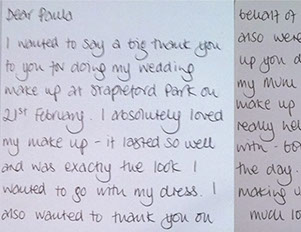 Dear Paula
I wanted to say a big thank you
to you for doing my wedding
make up at Stapleford Park on
21st February. I absolutely loved
my make up - it lasted so well
and was exactly the look I
wanted to go with my dress. I
also wanted to thank you on
behalf of
also were
up you d
my Mum
make up
really hel
with - bo
the day.
making u
much lo